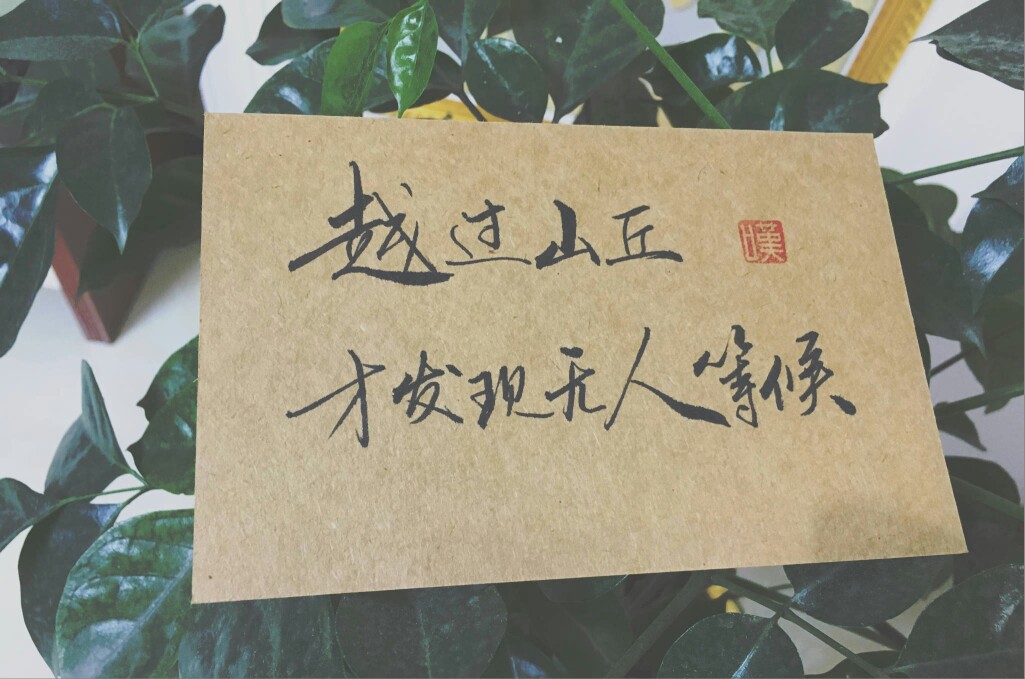 越过山丘
才发现无人等候